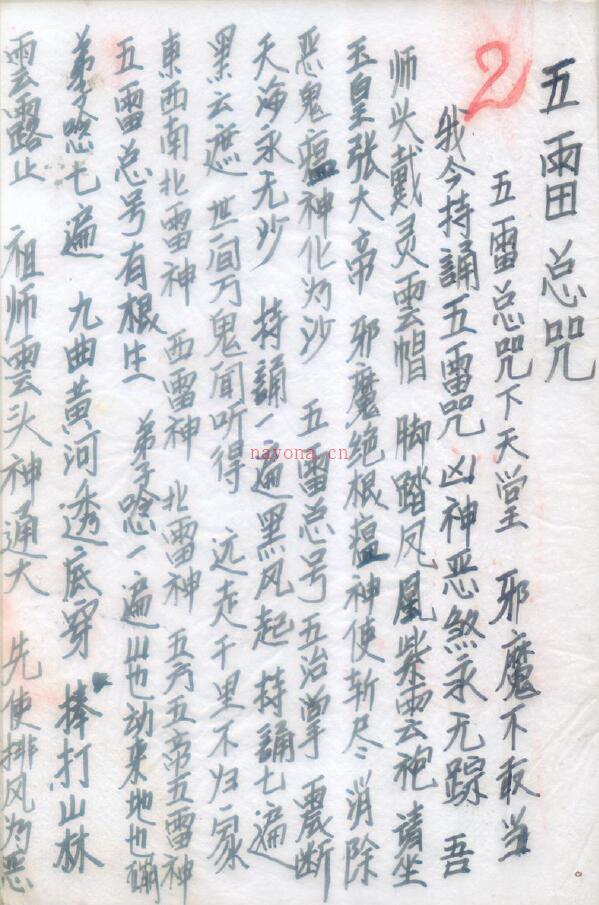 2
五雷总咒
五雷总咒下天堂 邪魔不敢当
我今持誦五雷咒 凶神恶煞永无踪 吾
师头戴灵雲帽 脚踏凤凰紫云袍 请坐
玉皇张大帝 邪魔绝根瘟神使斩尽 消除
恶鬼瘟神化为沙 五雷总号五治掌 震断
天海永无沙 持誦一遍黑风起 持誦七遍
黑云遮 世间万鬼闻听得 远走千里不归家
東西南北雷神 西雷神 北雷神 五方五帝五雷神
五雷总号有根生 弟子唸一遍山也动来地也崩
弟子唸七遍 九曲黄河透底穿 捧打山林
雲露止 祖师雲头神通大 先使排风为恶
nayona.cn